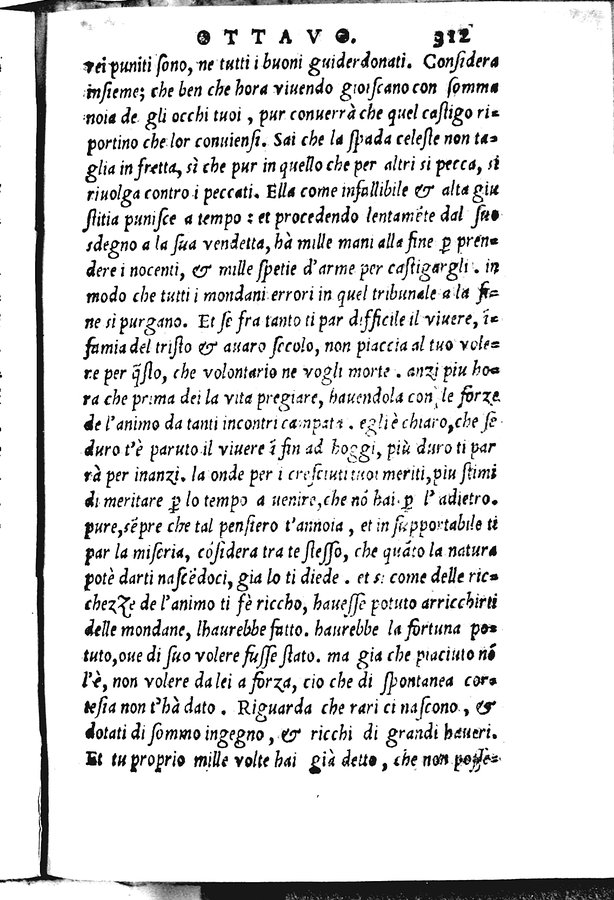 OTTAVO. 312
rei puniti ſono, ne tutti i buoni guiderdonati. Conſidera
inſieme; che ben che hora viuendo gioiſcano con ſomma
noia de gli occhi tuoi, pur conuerrà che quel caſtigo ri-
portino che lor conuienſi. Sai che la ſpada celeſte non ta-
glia in fretta, sì che pur in quello che per altri si pecca, si
riuolga contro i peccati. Ella come infallibile & alta giu
ſtitia puniſce a tempo: et procedendo lentamēte dal ſuo
sdegno a la ſua vendetta, hà mille mani alla fine ꝑ pren-
dere i nocenti, & mille ſpetie d'arme per caſtigargli. in
modo che tutti i mondani errori in quel tribunale a la fi-
ne si purgano. Et ſe fra tanto ti par difficile il viuere, ī-
famia del triſto & auaro ſecolo, non piaccia al tuo vole-
re per q̃ſto, che volontario ne vogli morte. anzi piu ho-
ra che prima dei la vita pregiare, hauendola con le forze
de l'animo da tanti incontri campata. egli è chiaro, che ſe
duro t'è paruto il viuere ī fin ad hoggi, più duro ti par
rà per inanzi. la onde per i creſciuti tuoi meriti, piu ſtimi
di meritare ꝑ lo tempo a uenire, che nō hai ꝑ l'adietro.
pure, sēpre che tal penſiero t'annoia, et inſupportabile ti
par la miſeria, cōſidera tra te ſteſſo, che quāto la natura
potè darti naſcēdoci, gia lo ti diede. et si come delle ric-
chezze de l'animo ti fè riccho, haueſſe potuto arricchirti
delle mondane, lhaurebbe fatto. haurebbe la fortuna po-
tuto, oue di ſuo volere fuſſe ſtato. ma gia che piaciuto nō
l'è, non volere da lei a forza, cio che di ſpontanea cor-
teſia non t'hà dato. Riguarda che rari ci naſcono, &
dotati di ſommo ingegno, & ricchi di grandi haueri.
Et tu proprio mille volte hai già detto, che non poſſe-